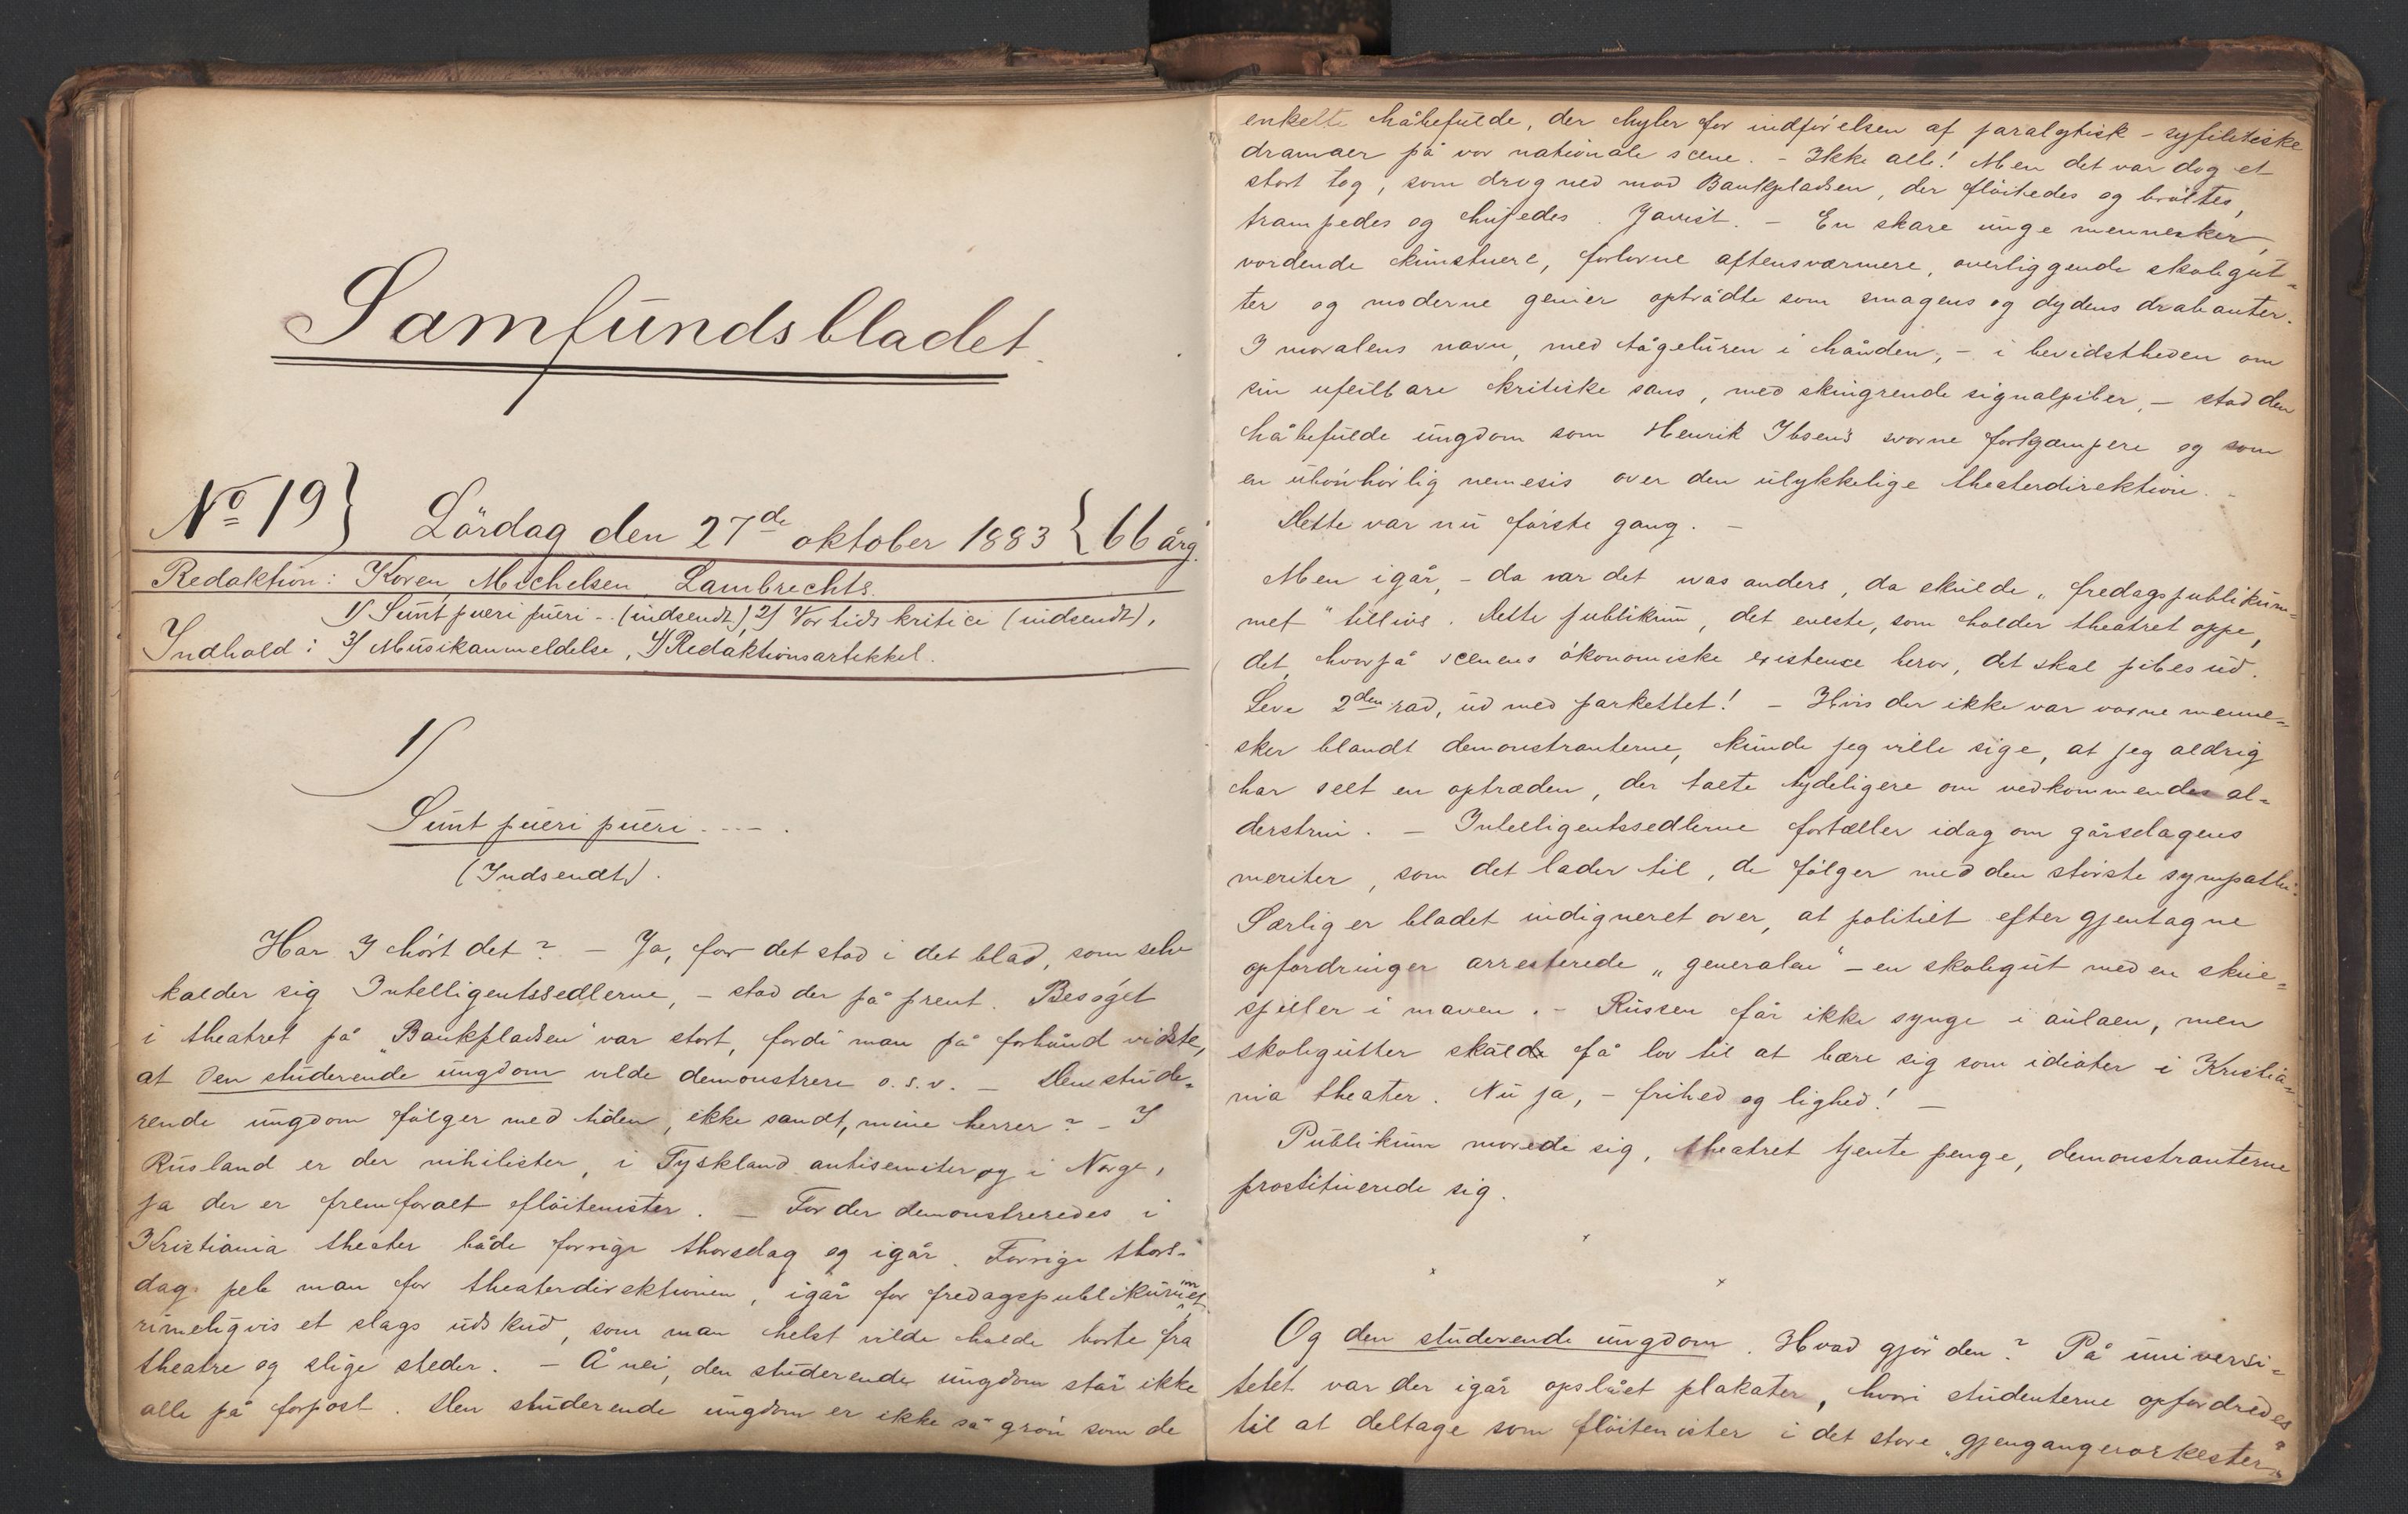 Samfundsbladet.
No 19} Lördag den 27de oktober 1883 {66 årg.
Redaktion: Koren, Michelsen, Lambrechts.
1) Sunt pueri pueri -- (indsendt), 2) Vor tids kritici (indsendt),
Indhold: 3) Musikanmeldelse, 4) Redaktionsartikkel.
1)
Sunt pueri pueri ----.
(Indsendt).
Har I hört det? - Ja, for det stod i det blad, som selv
kalder sig Intelligentssedlerne, - stod der på prent. Besøget
i theatret på "Bankpladsen" var stort, fordi man på forhånd vidste,
at den studerende ungdom vilde demonstrere o.s.v. - Den stude-
rende ungdom følger med tiden, ikke sandt, mine herrer? - I
Rusland er der nihilister, i Tyskland antisemiter og i Norge,
ja der er fremforalt flöitenister. - For der demonstreredes i
Kristiania theater både forrige thorsdag og igår. Forrige thors-
dag peb man for theaterdirektionen, igår for fredagspublikummet
rimeligvis et slags udskud, som man helst vilde holde borte fra
theatre og slige steder. - Å nei, den studerende ungdom står ikke
alle på forpost. Den studerende ungdom er ikke så grøn som de
enkelte håbefulde, der hyler for indførelsen af paralytisk-syfilitiske
dramaer på vor nationale scene. - Ikke alle! Men det var dog et
stort tog, som drog ned mod Bankpladsen, der flöitedes og bröltes,
trampedes og hujedes. Javist. - En skare unge mennesker,
vordende kunstnere, forlorne aftensværmere, overliggende skolegut-
ter og moderne genier optrådte som smagens og dydens drabanter.
I moralens navn, med tågeluren i hånden, - i bevidstheden om
sin ufeilbare kritiske sans, med skingrende signalpiber, - stod den
håbefulde ungdom som Henrik Ibsens svorne forkjæmpere og som
en ubönhörlig nemesis over den ulykkelige theaterdirektion. -
Dette var nu første gang. -
Men igår, - da var det was anders, da skulde "fredagspublikum-
met" tillivs. Dette publikum, det eneste, som holder theatret oppe,
det, hvorpå scenens økonomiske existence beror, det skal pibes ud.
Leve 2den rad, ud med parkettet! - Hvis der ikke var vorne menne-
sker blandt demonstranterne, kunde jeg ville sige, at jeg aldrig
har seet en optræden, der talte tydeligere om vedkommendes al-
derstrin. - Intelligentssedlerne fortæller idag om gårsdagens
meriter, som det lader til, de følger med den største sympathi.
Særlig er bladet indigneret over, at politiet efter gjentagne
opfordringer arresterede "generalen" - en skolegut med en skue-
spiller i maven. - Russen får ikke synge i aulaen, men
skolegutter skulde få lov til at bære sig som idioter i Kristia-
nia theater. Nu ja, - frihed og lighed! -
Publikum morede sig, theatret tjente penge, demonstranterne
prostituerede sig.
x
x x
Og den studerende ungdom. Hvad gjör den? På universi-
tetet var der igår opslået plakater, hvori studenterne opfordredes
til at deltage som flöitenister i det store "gjengangerorkester",